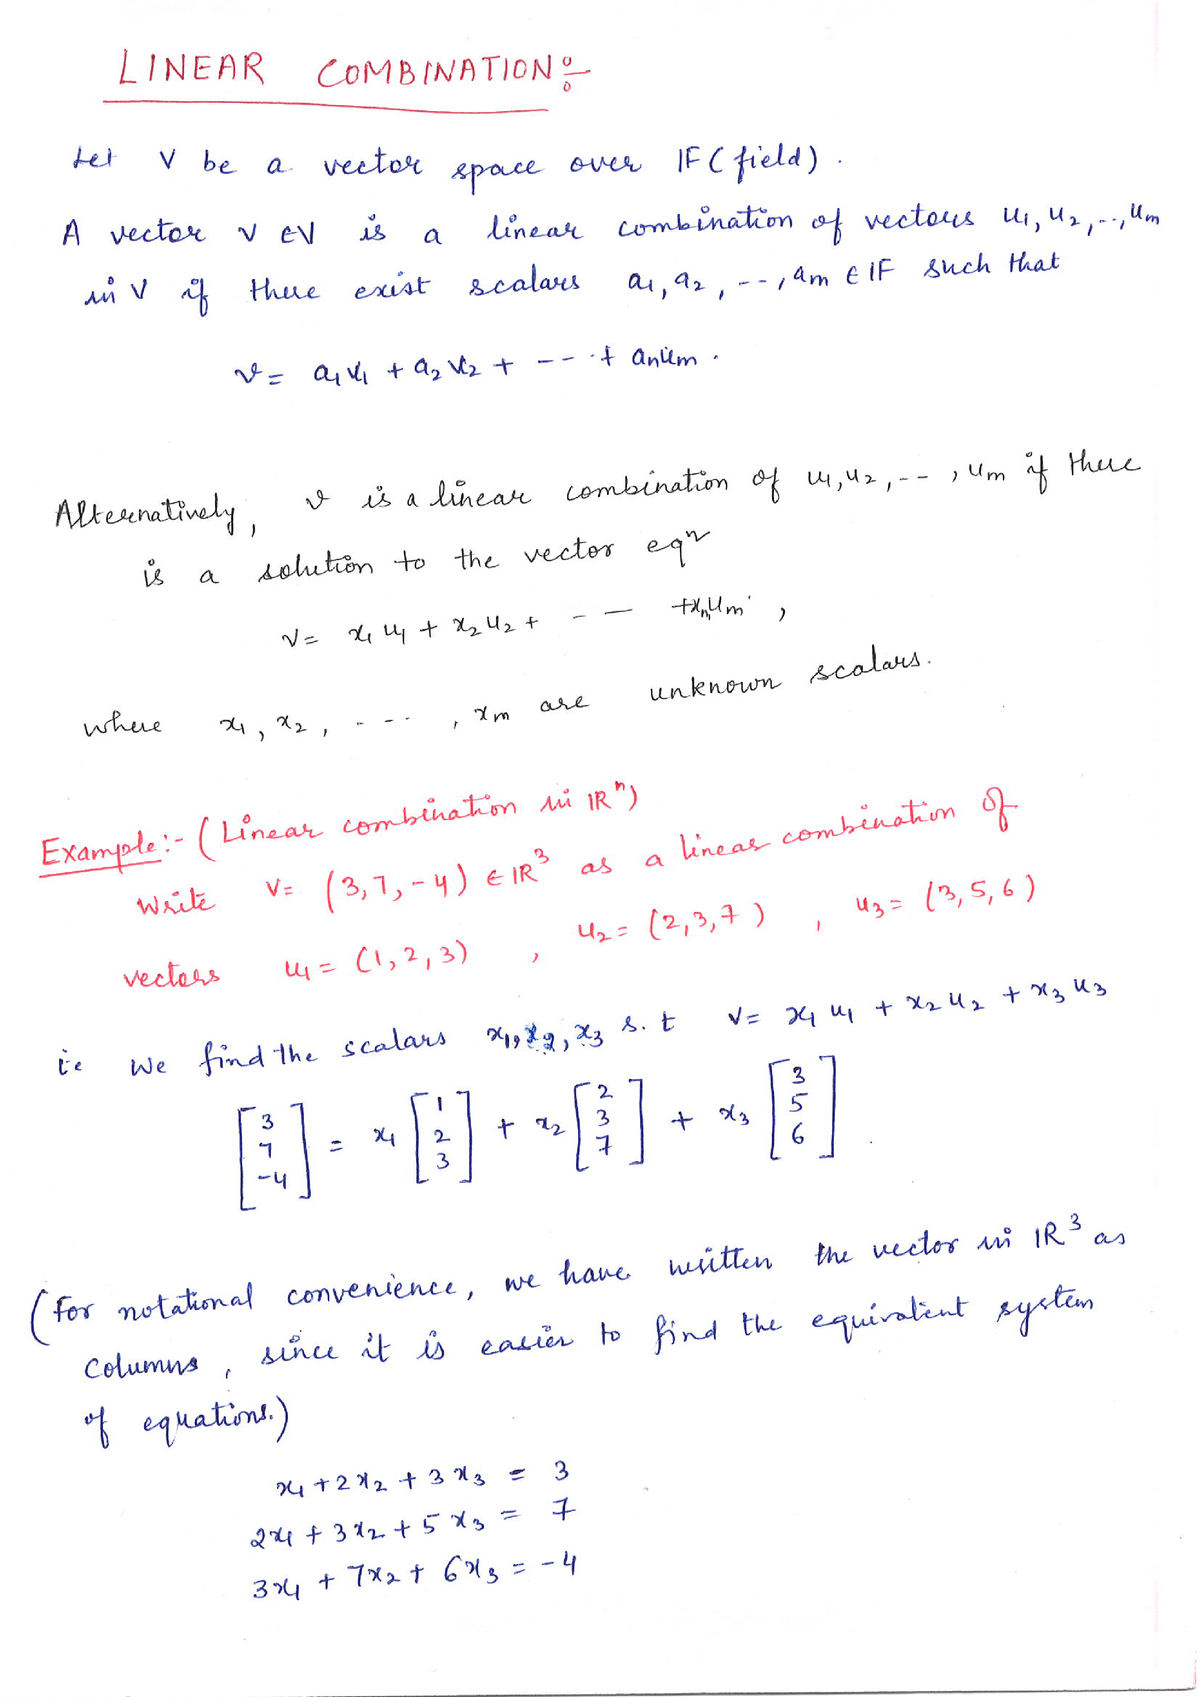 LINEAR COMBINATION :-
Let V be a vector space over IF (field) .
A vector v ∈ V is a linear combination of vectors u1, u2, --, um
in V if there exist scalars a1, a2, --, am ∈ IF such that
v = a1 v1 + a2 v2 + -- + anum .
Alternatively, v is a linear combination of u1, u2, --, um if there
is a solution to the vector eqn
v = x1 u1 + x2 u2 + -- + xnum ,
where x1, x2, ---, xm are unknown scalars.
Example:- (Linear combination in IR^n)
Write v = (3, 7, -4) ∈ IR^3 as a linear combination of
vectors u1 = (1, 2, 3) , u2 = (2, 3, 7) , u3 = (3, 5, 6)
ie We find the scalars x1, x2, x3 s.t v = x1 u1 + x2 u2 + x3 u3
[3 7 -4] = x1 [1 2 3] + x2 [2 3 7] + x3 [3 5 6] .
(For notational convenience, we have written the vector in IR^3 as
columns , since it is easier to find the equivalent system
of equations.)
x1 + 2x2 + 3x3 = 3
2x1 + 3x2 + 5x3 = 7
3x1 + 7x2 + 6x3 = -4